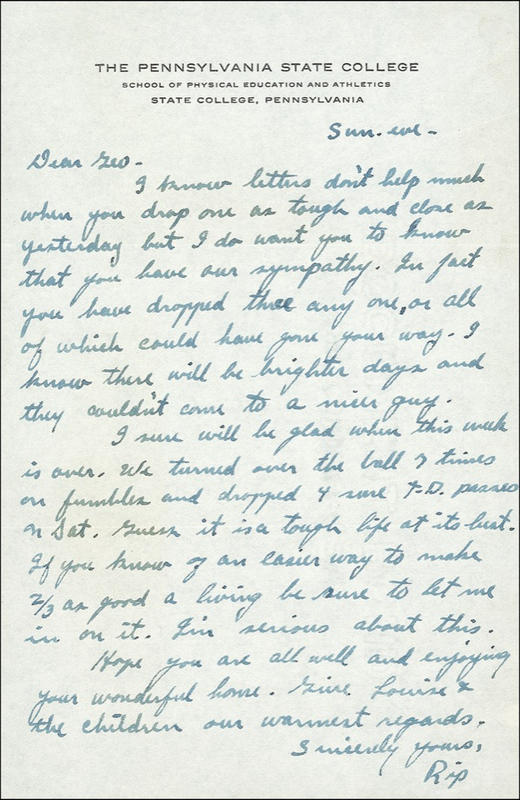 THE PENNSYLVANIA STATE COLLEGE
SCHOOL OF PHYSICAL EDUCATION AND ATHLETICS
STATE COLLEGE, PENNSYLVANIA
Sun. eve -
Dear Geo -
I know letters don't help much
when you drop one as tough and close as
yesterday but I do want you to know
that you have our sympathy. In fact
you have dropped three any one, or all
of which could have gone your way. I
know there will be brighter days and
they couldn't come to a nicer guy.
I sure will be glad when this week
is over. We turned over the ball 7 times
on fumbles and dropped 4 sure T.D. passes
on Sat. Guess it is a tough life at its best.
If you know of an easier way to make
2/3 as good a living be sure to let me
in on it. I'm serious about this.
Hope you are all well and enjoying
your wonderful home. Give Louise &
the children our warmest regards.
Sincerely yours,
Rip